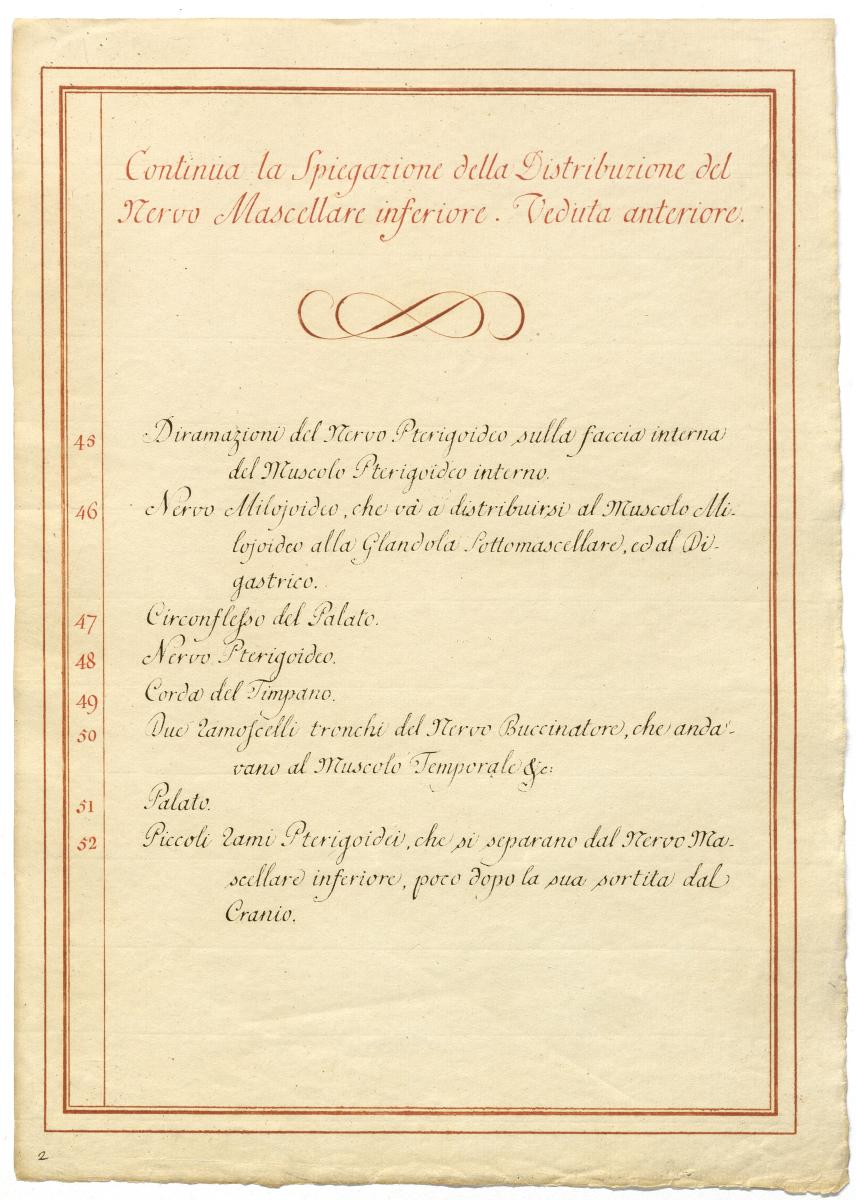 Continua la Spiegazione della Distribuzione del
Nervo Mascellare inferiore. Veduta anteriore.
45 Diramazioni del Nervo Pterigoideo sulla faccia interna
del Muscolo Pterigoideo interno.
46 Nervo Milojoideo, che và a distribuirsi al Muscolo Mi-
lojoideo alla Glandola Sottomascellare, ed al Di-
gastrico.
47 Circonflesso del Palato.
48 Nervo Pterigoideo.
49 Corda del Timpano.
50 Due ramoscelli tronchi del Nervo Buccinatore, che anda-
vano al Muscolo Temporale &c:
51 Palato.
52 Piccoli rami Pterigoidei, che si separano dal Nervo Ma-
scellare inferiore, poco dopo la sua sortita dal
Cranio.
2